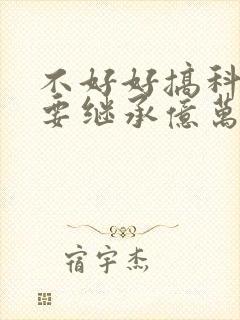 不好好搞科
要继承億萬
宿宇杰